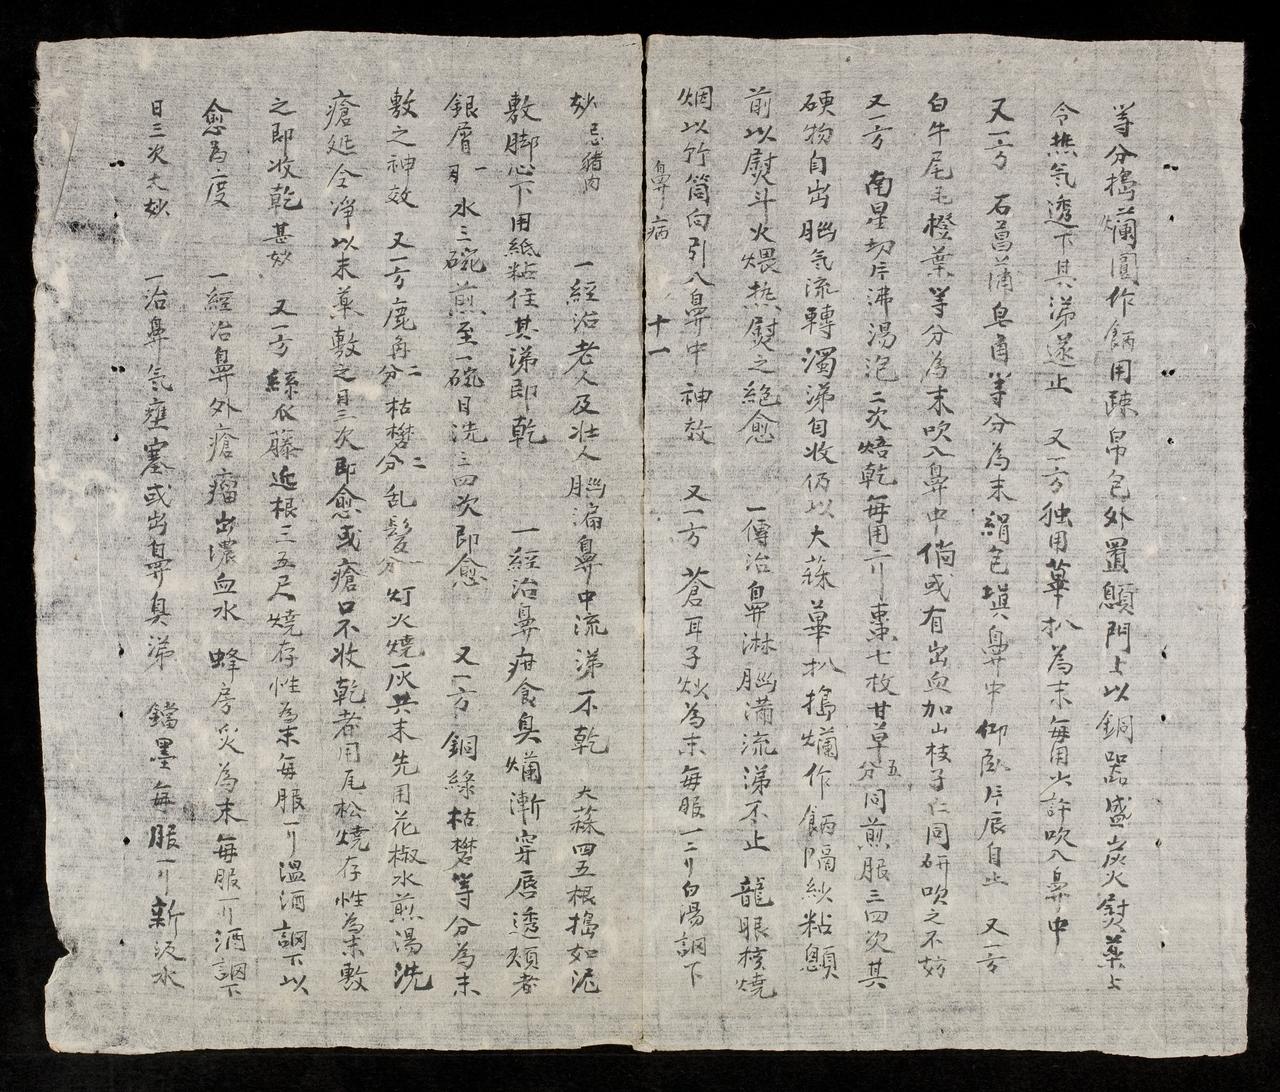 等分搗爛圓作餅用疎帛包外置顖門上以銅器盛炭火熨藥上
令热氣透下其涕遂止　又一方独用蓽扒為末每用少許吹入鼻中
又一方　石菖蒲皂角等分為末絹包塡鼻中仰臥片辰自止　又一方
白牛尾毛橙葉等分為末吹入鼻中倘或有出血加山枝子仁同研吹之不妨
又一方　南星切片沸湯泡二次焙乾每用二刂棗七枚甘草五分同煎服三四次其
硬物自出腦氣流轉濁涕自收仍以大蒜蓽扒搗爛作餅隔紗粘顖
前以熨斗火煨热熨之絶愈　一傳治鼻淋腦滿流涕不止　龍眼核燒
烟以竹筒向引入鼻中　神效　又一方　蒼耳子炒為末每服一二刂白湯調下
鼻病　十一
妙　忌猪肉　一經治老人及壮人腦漏鼻中流涕不乾　大蒜四五根搗如泥
敷脚心下用紙粘住其涕即乾　一經治鼻疳食臭爛漸穿唇透頰者
銀屑一刃水三碗煎至一碗日洗三四次即愈　又一方　銅綠枯礬等分為末
敷之神效　又一方鹿角二分枯礬二分乱髮一分灯火燒灰共末先用花椒水煎湯洗
瘡延令净以末藥敷之日三次即愈或瘡口不收乾者用瓦松燒存性為末敷
之即收乾甚妙　又一方　絲瓜藤近根三五尺燒存性為末每服一刂温酒調下以
愈為度　一經治鼻外瘡瘤出濃血水　蜂房炙為末每服一刂酒調下
日三次大妙　一治鼻氣壅塞或出鼻臭涕　鐺墨每服一刂新汲水